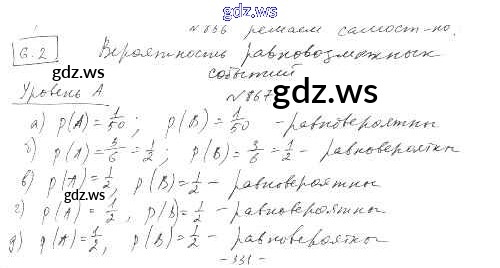 gdz.ws
№856 решаем самост-но.
6.2 Вероятность равновозможных
gdz.ws событий
Уровень А №867 gdz.ws
а) p(A)=1/50; p(B)=1/50 - равновероятны
б) p(A)=3/6=1/2; p(B)=3/6=1/2 - равновероятны
в) p(A)=1/2, p(B)=1/2 - равновероятны
gdz.ws
г) p(A)=1/2, p(B)=1/2 - равновероятны
д) p(A)=1/2, p(B)=1/2 - равновероятны
gdz.ws
- 331 -